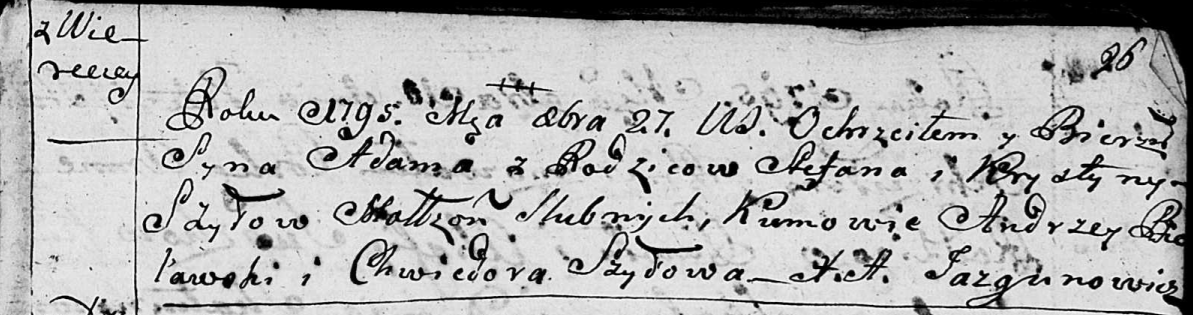 z Wie-
recey
26
Roku 1795. Mca 8bra 27. WS. Ochrzciłem y Bierzm
Syna Adama z Rodzicow Stefana i Krystyny
Szyłow Małżoń Slubnych, Kumowie Andrzey Bie
ławski i Chwiedora Szyłowa — A.A. Jazgunowicz